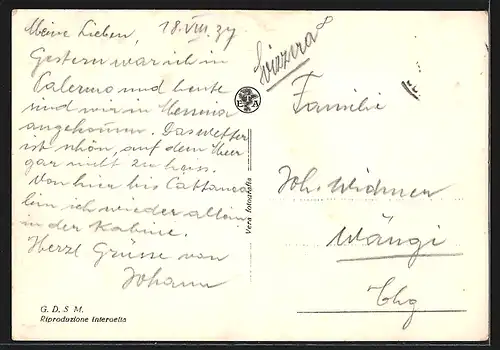 Meine Lieben, 18. VIII. 37
Gestern war ich in
Palermo und heute
sind wir in Messina
angekommen. Das Wetter
ist schön, auf dem Meer
gar nicht zu heiss.
Von hier bis Cattanea
bin ich wieder allein
in der Kabine.
Herzl. Grüsse von
Johann
G. D. S. M.
Riproduzione interdetta
E A
Vera fotografia
Svizzera
Familie
Joh. Widmer
Wängi
Thg